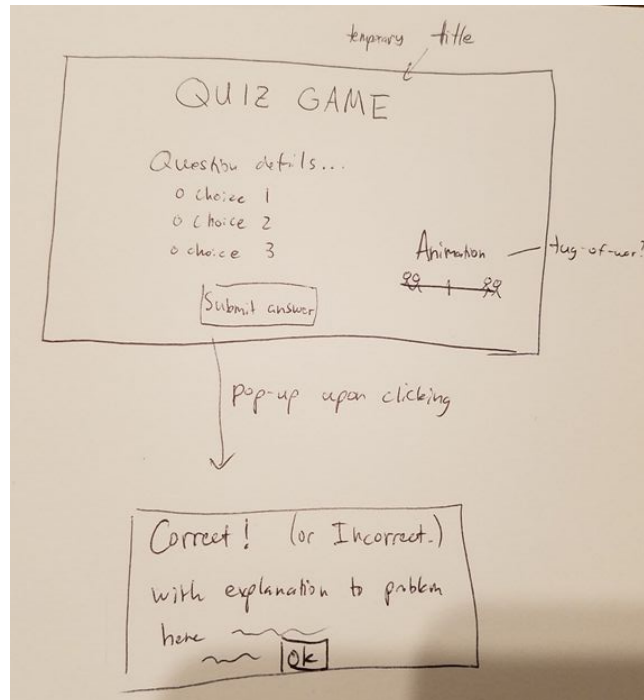 temporary title
QUIZ GAME
Question details...
o choice 1
o choice 2
o choice 3
Animation
tug-of-war?
Submit answer
pop-up upon clicking
Correct! (or Incorrect.)
with explanation to problem
here
Ok